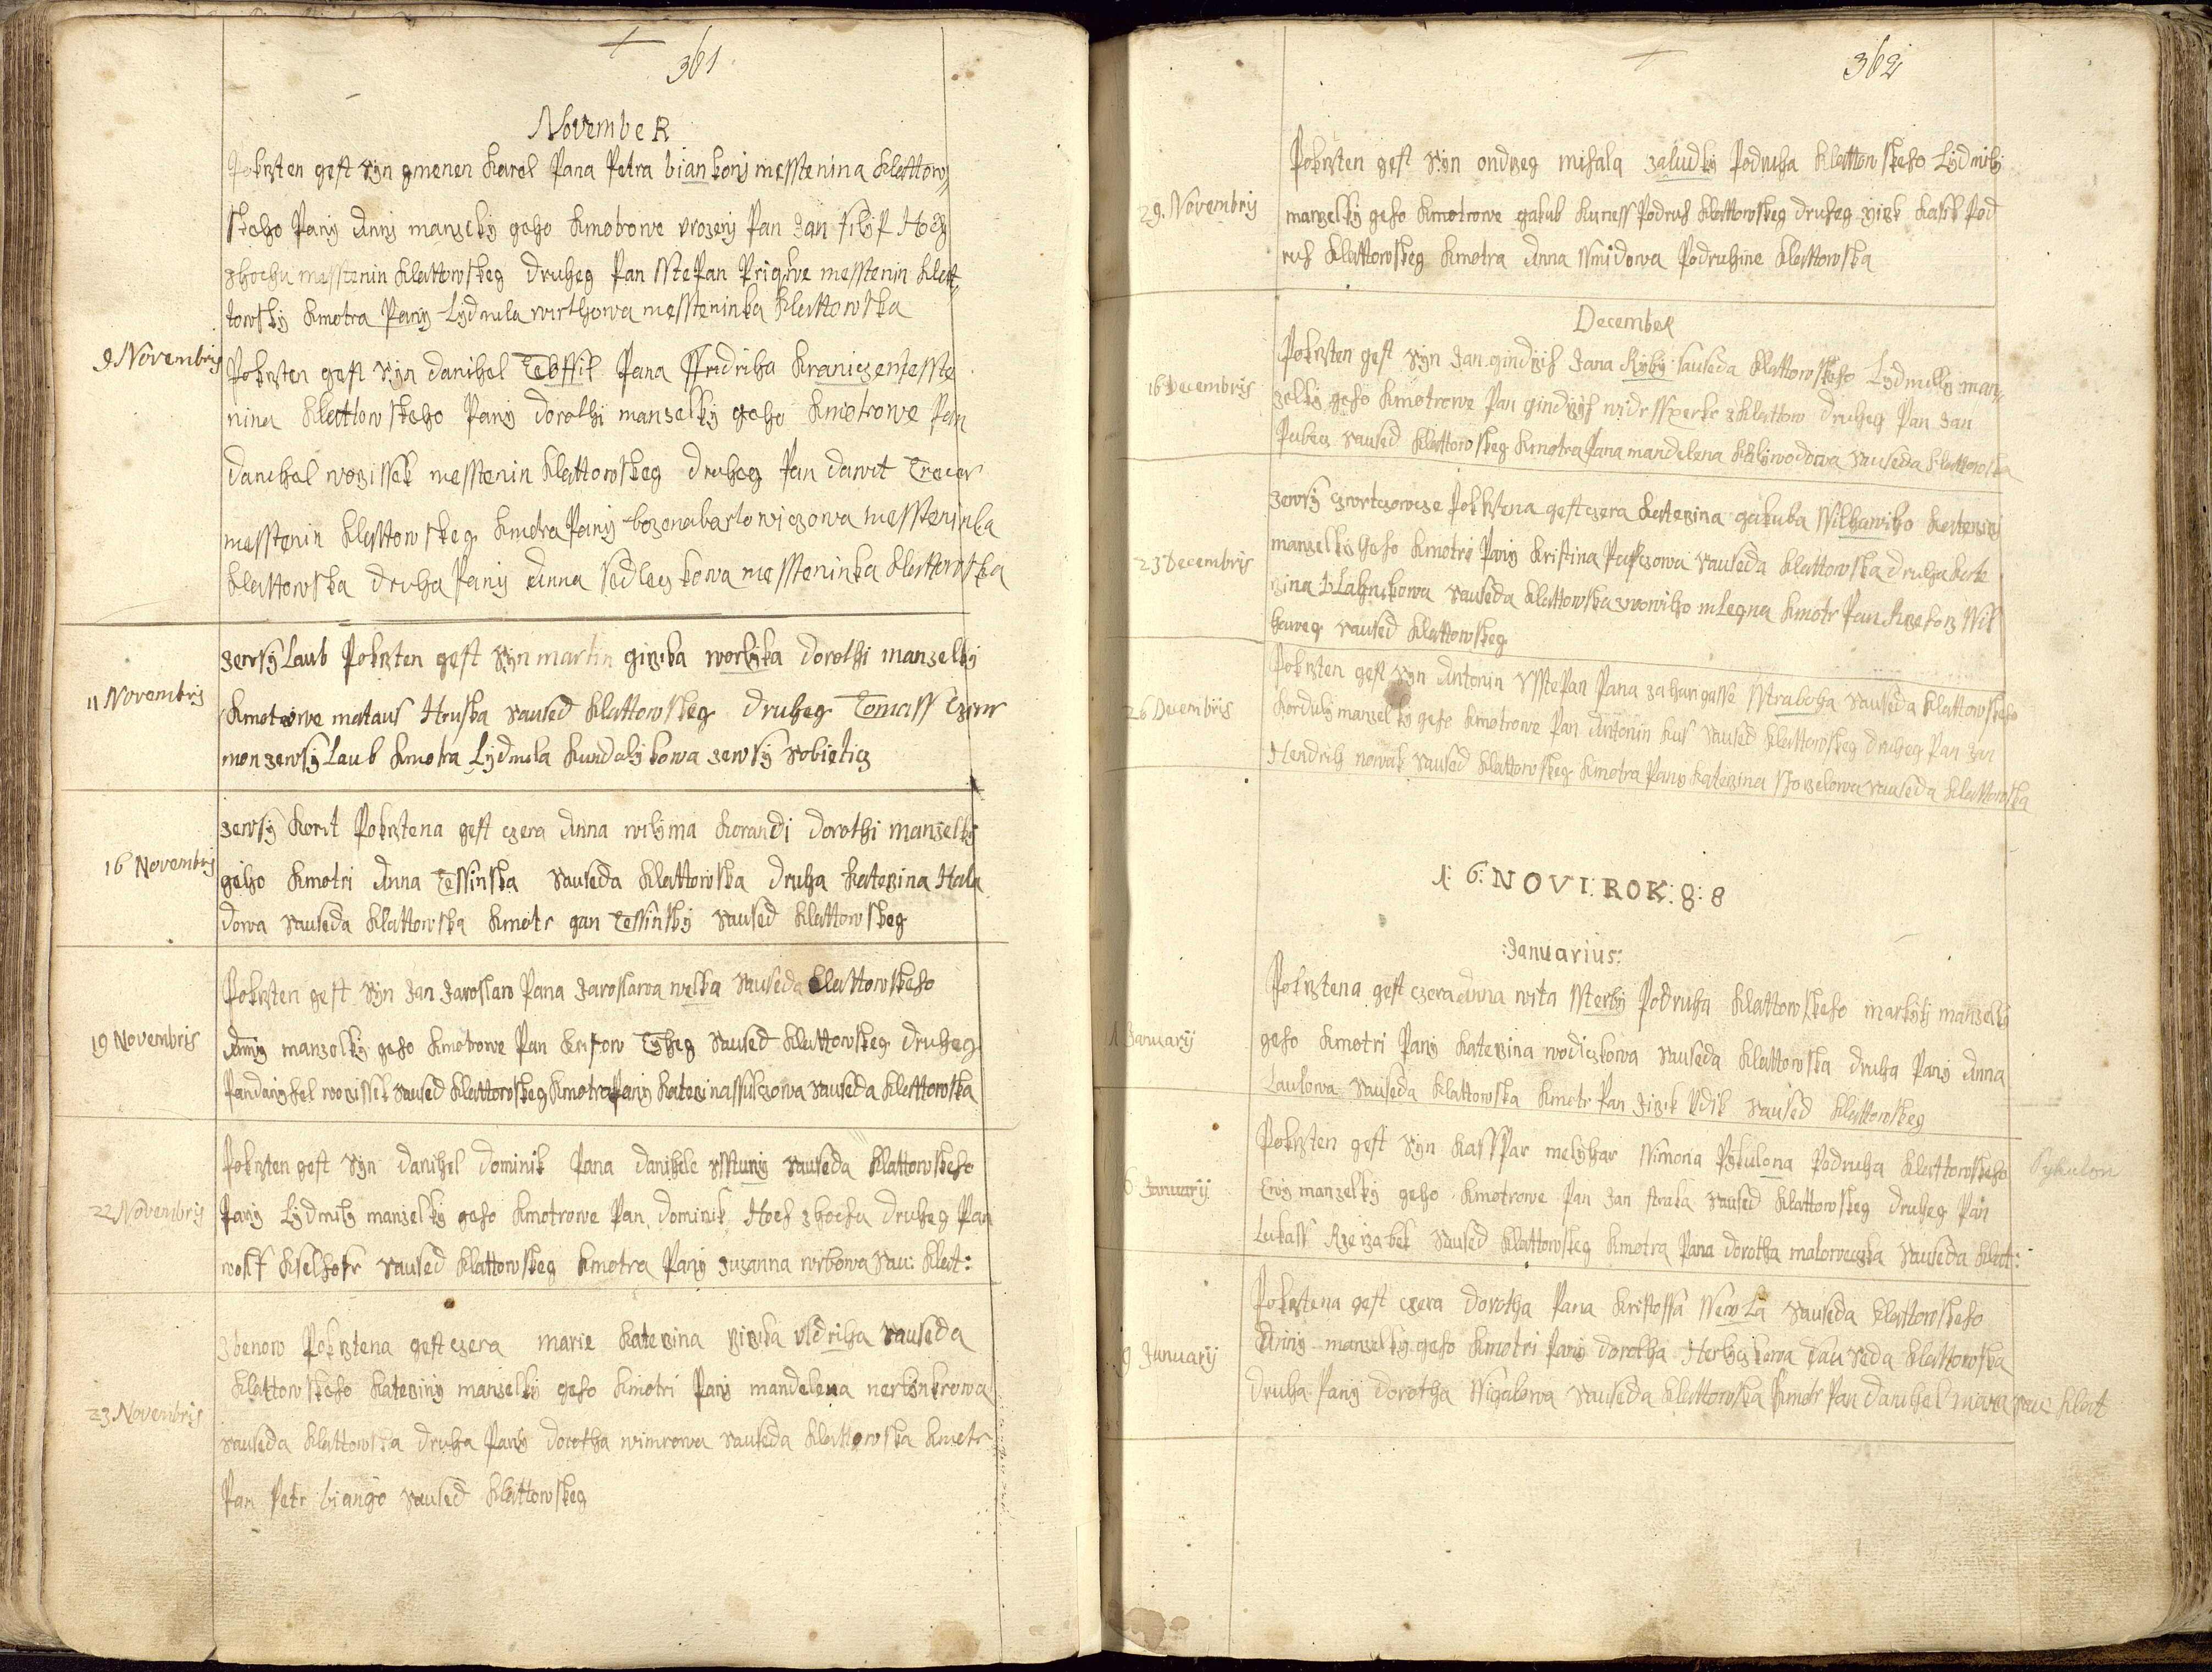 361
November
Pokrzten gest Syn gmenen Karel Pana Petra biankony messtenina Klattow„
skeho Pany Anny manzelky geho Kmotrowe urozeny Pan Jan Filip Hoch
zhochu messtenin Klattowskeg druheg Pan SstePan Prigwe messtenin Klat„
towsky Kmotra Pany Lydmila wirthowa messteninka Klattowska
9 Novembris
Pokrzten gest Syn danihel Teoffil Pana Ffridriha Kraniczemesste
nina Klattowskeho Pany dorothi manzelky geho Kmotrowe Pan
danihel wozissek messtenin Klattowskeg druheg Pan dawit
messtenin Klattowskeg Kmotra Pany bozenabartowiczowa messteninka
Klattowska druha Pany Anna Sedleczkowa messteninka Klattowska
11 Novembris
zewsy Laub Pokrzten gest Syn martin girzika worlyka dorothi manzelky
Kmotrowe mataus Hruska Saused Klattowskeg druheg Tomass
mon zewsy Laub Kmotra Lydmila Kundalykowa zewsy Sobieticz
16 Novembris
zewsy Korit Pokrztena gest czera Anna wilyma Korandi dorothi manzelky
geho Kmotri Anna Tessinska Sauseda Klattowska druha Katerzina Hala
dowa Sauseda Klattowska Kmotr gan Tessinsky Saused Klattowskeg
19 Novembris
Pokrzten gest Syn Jan Jaroslaw Pana Jaroslawa welka Sauseda Klattowskeho
Anny manzelky geho Kmotrowe Pan Saused Klattowskeg druheg
Pan danyhel wozissek Saused Klattowskeg Kmotra Pany Katerzina ssulczowa Sauseda Klattowska
22 Novembris
Pokrzten gest Syn danihel dominik Pana danihele Sstuny Sauseda Klattowskeho
Pany Lydmily manzelky geho Kmotrowe Pan dominik Hoch zhochu druheg Pan
wolf Kselhofr Saused Klattowskeg Kmotra Pany zuzanna wrbowa Sau: Klat:
23 Novembris
zbenow Pokrztena gest czera marie Katerzina girzika Uldriha Sauseda
Klattowskeho Katerziny manzelky geho Kmotri Pany mandelena nerlynkrowa
Sauseda Klattowska druha Pany dorotha wimrowa Sauseda Klattowska Kmotr
Pan Petr biango Saused Klattowskeg
362
29. Novembris
Pokrzten gest Syn ondrzeg mihala zaludky Podruha Klattowskeho Lydmily
manzelky geho Kmotrowe gakub Kuness Podruh Klattowskeg druheg girzik Kasik Pod
ruh Klattowskeg Kmotra Anna Smidowa Podruhine Klattowska
December
16 Decembris
Pokrzten gest Syn Jan gindrzich Jana Ryby Sauseda Klattowskeho Lydmilly man„
zelky geho Kmotrowe Pan gindrzich widrssperke zklattow druheg Pan Jan
Pubecz Saused Klattowskeg Kmotra Pana mandelena Khlywodowa Sauseda Klattowska
23 Decembris
zewsy Pokrztena gest czera Katerzina gakuba Katerziny
manzelky geho Kmotri Pany Kristina Sauseda Klattowska druha Kate
rzina blahutkowa Sauseda Klattowska znowiho mlegna Kmotr Pan Rzehorz
haweg Saused Klattowskeg
26 Decembris
Pokrzten gest Syn Antonin SstePan Pana zaharigasse Sstraboha Sauseda Klattowskeho
Korduly manzelky geho Kmotrowe Pan Antonin Kus Saused Klattowskeg druheg Pan Jan
Hendrih nowak Saused Klattowskeg Kmotra Pany Katerzina Sauseda Klattowska
1: 6: NOVI: ROK: 8: 8
:Januarius:
1 January
Pokrztena gest czera Anna wita Ssterby Podruha Klattowskeho markyty manzelky
geho Kmotri Pany Katerzina wodiczkowa Sauseda Klattowska druha Pany Anna
Laukowa Sauseda Klattowska Kmotr Pan Jirzik Vdik Saused Klattowskeg
6 January
Pokrzten gest Syn KassPar melyhar Simona Pykulona Podruha Klattowskeho
Ewy manzelky geho Kmotrowe Pan Jan straka Saused Klattowskeg druheg Pan
Lukass Rzerzabek Saused Klattowskeg Kmotra Pana dorotha malowecka Sauseda Klat:
Sykulon
9 January
Pokrztena gest czera dorotha Pana Kristoffa Sauseda Klattowskeho
Anny manzelky geho Kmotri Pany dorotha Herlyczkowa Sauseda Klattowska
druha Pany dorotha Sigalowa Sauseda Klattowska Kmotr Pan danihel mara Sau: Klat